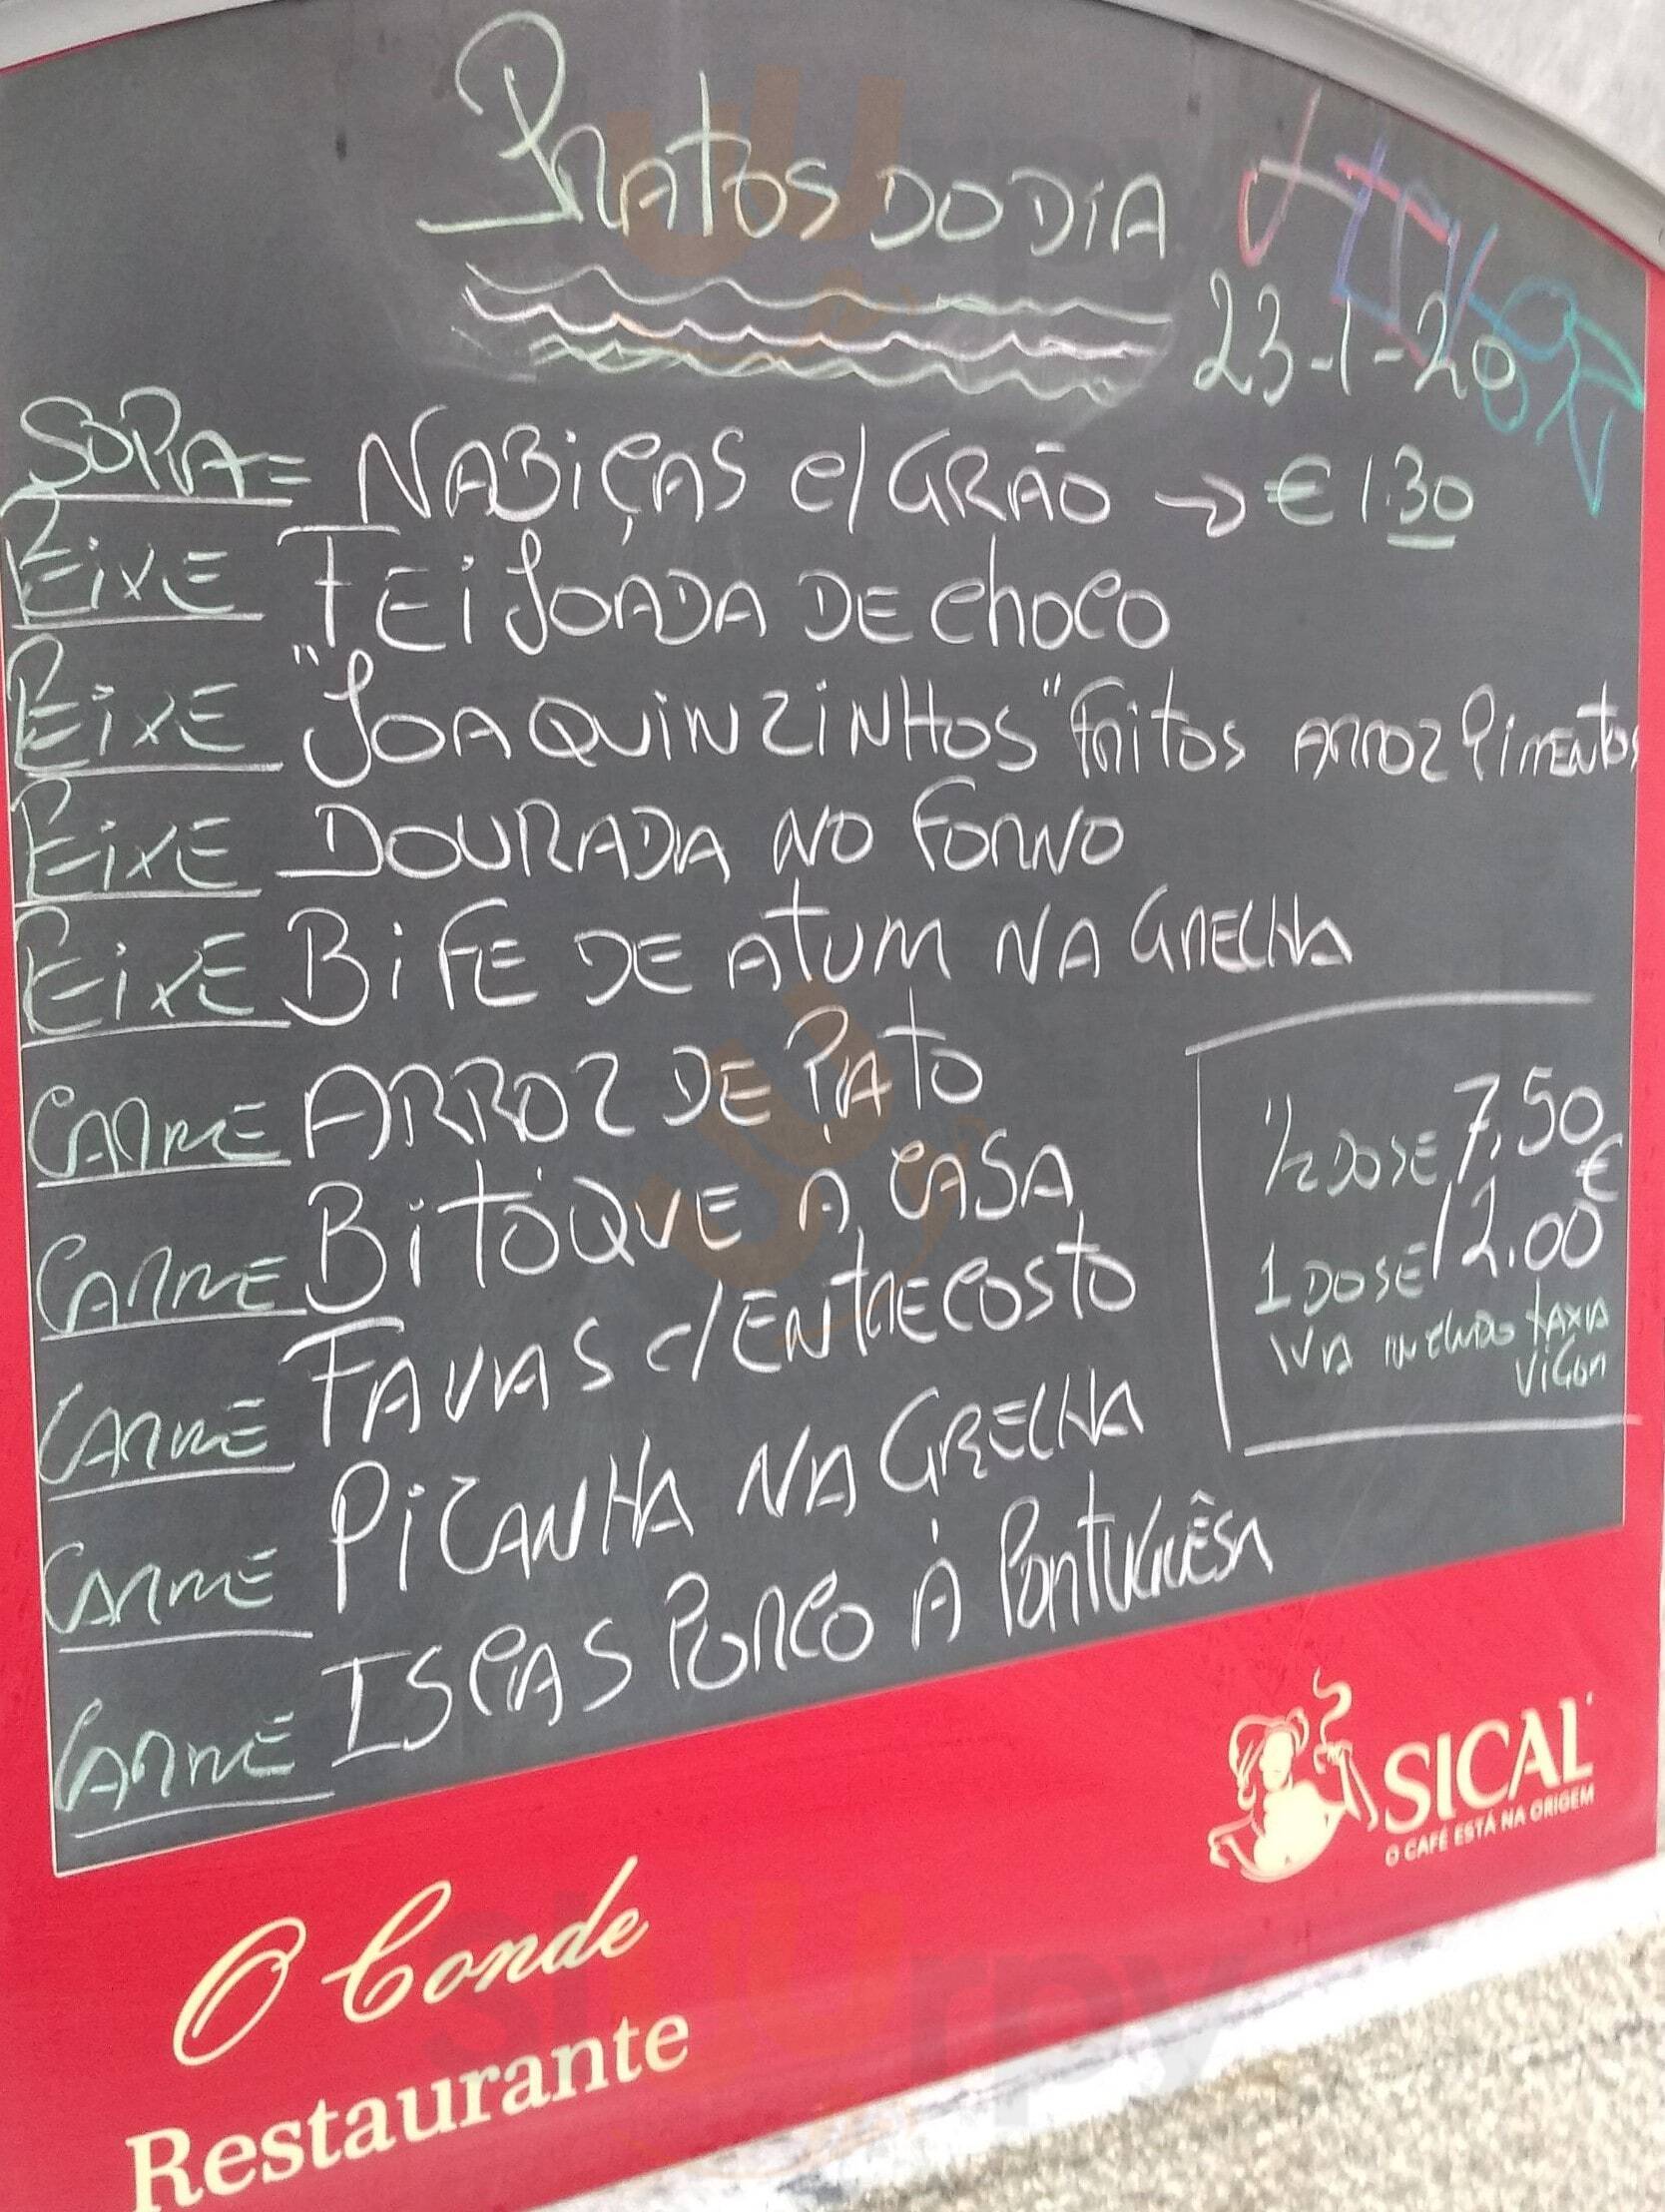 PRATOS DO DIA
23-1-20
SOPA = NABIÇAS C/ GRÃO → € 1.30
PEIXE FEIJOADA DE CHOCO
PEIXE "JOAQUINZINHOS" FRITOS ARROZ PIMENTOS
PEIXE DOURADA NO FORNO
PEIXE BIFE DE ATUM NA GRELHA
CARNE ARROZ DE PATO
CARNE BITOQUE À CASA
CARNE FAVAS C/ENTRECOSTO
CARNE PICANHA NA GRELHA
CARNE ISCAS PORCO À PORTUGUÊSA
1/2 DOSE 7,50 €
1 DOSE 12.00
IVA INCLUIDO TAXA
VIGOR
SICAL
O CAFÉ ESTÁ NA ORIGEM
O Conde
Restaurante
slurpy